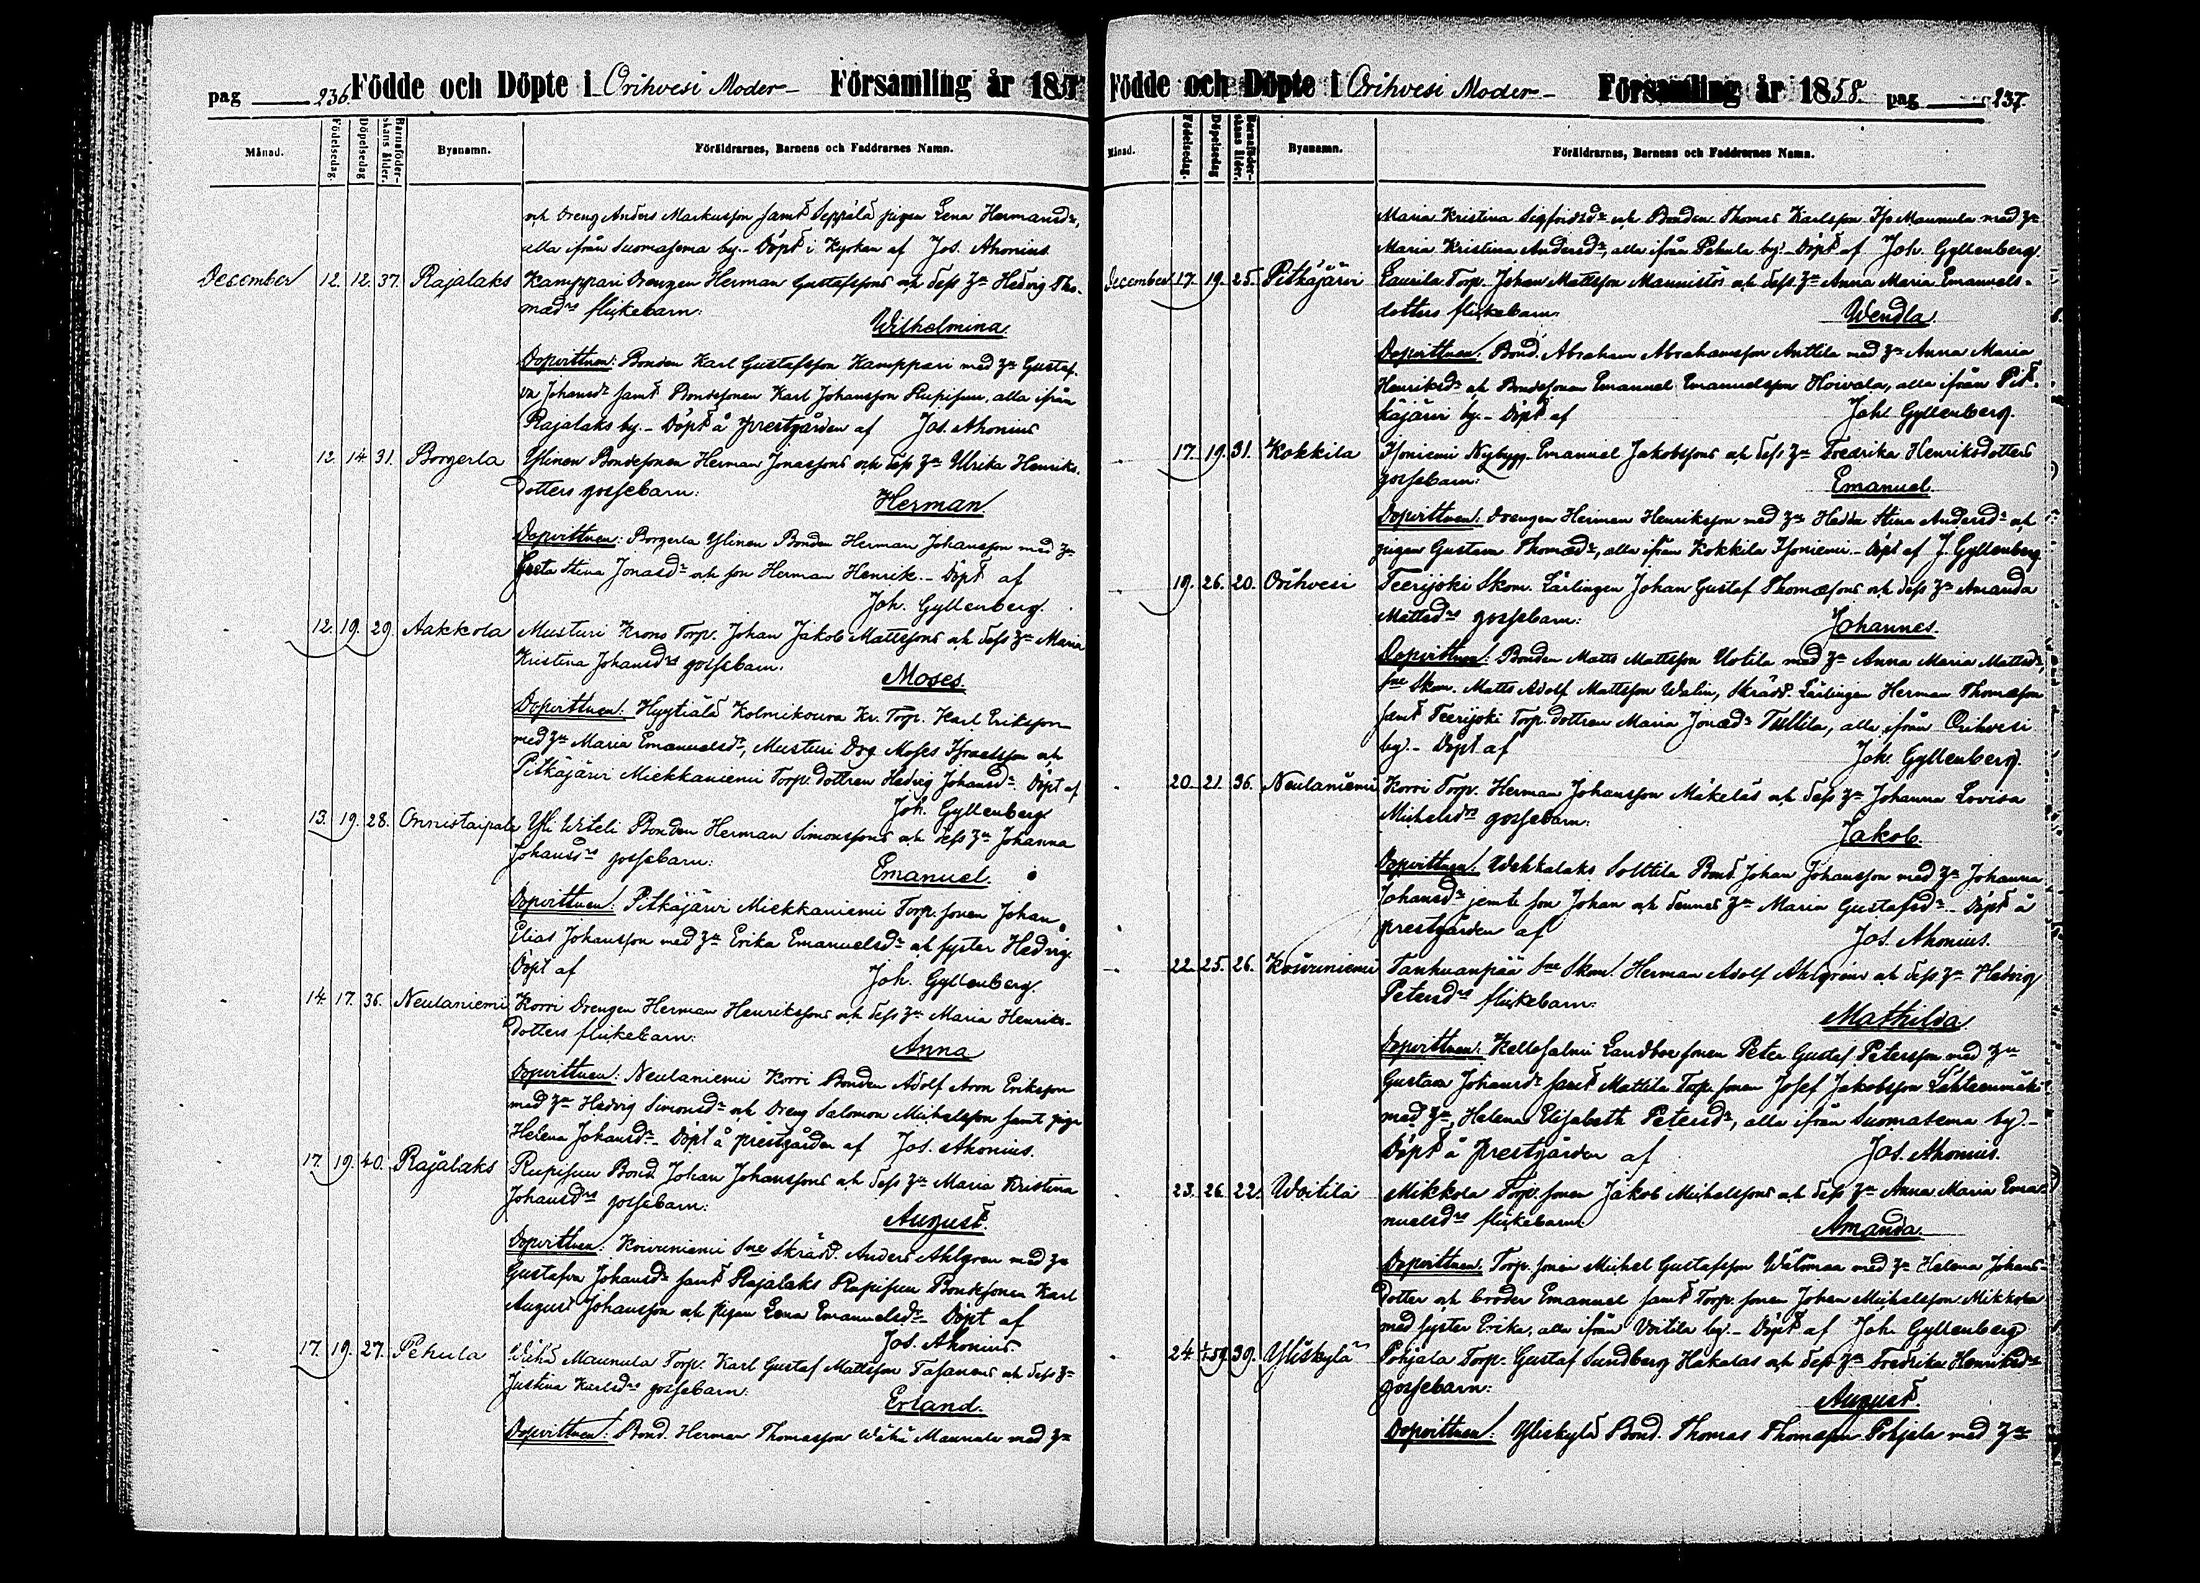 pag 236. Födde och Döpte i Orihvesi Moder- Församling år 185
Månad. Födelsedag. Döpelsedag Barnaföderskans ålder. Bysnamn. Föräldrarnes, Barnens och Faddrarnes Namn.
och Dreng Anders Markusson samt Seppälä pigan Lena Hermansdr,
alla ifrån Suomasema by. - Döpt i Kyrkan af Jos. Ahonius
December 12. 12. 37. Rajalaks Kamppari Drengen Herman Gustafssons och dess hu Hedvig Tho-
madrs flickebarn:
Wilhelmina.
Dopvittnen: Bonden Karl Gustafsson Kamppari med hu Gustaf-
va Johansdr samt Bondesonen Karl Johansson Rupisuu, alla ifrån
Rajalaks by. - Döpt å prestgården af Jos. Ahonius
12. 14 31. Borgerla Ylinen Bondesonen Herman Jonassons och dess hu Ulrika Henriks-
dotters gossebarn:
Herman.
Dopvittnen: Borgerla Ylinen Bonden Herman Johansson med hu
Greta Stina Jonasdr och son Herman Henrik. - Döpt af
Joh. Gyllenberg.
12. 19. 29. Aakkola Musturi Krono Torp. Johan Jakob Mattssons och dess hu Maria
Kristina Johansdrs gossebarn.
Moses.
Dopvittnen: Hyytiälä Kolmikoura Kr. Torp. Karl Eriksson
med hu Maria Emanuelsdr, Musturi Drg Moses Israelsson och
Pitkäjärvi Miekkaniemi Torp. dottren Hedvig Johansdr. Döpt af
Joh. Gyllenberg
13. 19. 28. Onnistaipale Yli Witeli Bonden Herman Simonssons och dess hu Johanna
Johansdrs gossebarn:
Emanuel.
Dopvittnen: Pitkäjärvi Miekkaniemi Torp. sonen Johan
Elias Johansson med hu Erika Emanuelsdr och syster Hedvig.
Döpt af Joh. Gyllenberg.
14. 17. 36. Neulaniemi Korri Drengen Herman Henrikssons och dess hu Maria Henriks-
dotters flickebarn:
Anna
Dopvittnen: Neulaniemi Korri Bonden Adolf Aron Eriksson
med hu Hedvig Simonsdr och Dreng Salomon Mickelsson samt piga
Helena Johansdr. - Döpt å prestgården af Jos. Ahonius.
17. 19. 40. Rajalaks Rupisuu Bond. Johan Johanssons och dess hu Maria Kristina
Johansdrs gossebarn:
August.
Dopvittnen: Koivuniemi Sne Skrädd. Anders Ahlgren med hu
Gustafva Johansdr samt Rajalaks Rupisuu Bondesonen Karl
August Johansson och pigan Lena Emanuelsdr - Döpt af
Jos. Ahonius
17. 19. 27. Pehula Wähä Maunula Torp. Karl Gustaf Mattsson Tasanens och dess hu
Justina Karlsdrs gossebarn:
Erland.
Dopvittnen: Bond. Herman Thomasson Wähä Maunula med hu
Födde och Döpte i Orihvesi Moder- Församling år 1858. pag 237.
Månad. Födelsedag. Döpelsedag Barnaföderskans ålder. Bysnamn. Föräldrarnes, Barnens och Faddrarnes Namn.
Maria Kristina Sigfridsdr och Bonden Thomas Karlsson Iso Maunula med hu
Maria Kristina Andersdr, alla ifrån Pehula by. - Döpt af Joh. Gyllenberg.
December 17. 19. 25. Pitkäjärvi Laurila Torp. Johan Mattsson Mannistös och dess hu Anna Maria Emanuels-
dotters flickebarn:
Wendla.
Dopvittnen: Bond. Abraham Abrahamsson Anttila med hu Anna Maria
Henriksdr och Bondesonen Emanuel Emanuelsson Hoivala, alla ifrån Pit-
käjärvi by. - Döpt af Joh. Gyllenberg.
17. 19. 31. Kokkila Isoniemi Nybygg. Emanuel Jakobssons och dess hu Fredrika Henriksdotters
gossebarn:
Emanuel.
Dopvittnen: Drengen Herman Henriksson med hu Hedda Stina Andersdr och
pigan Gustava Thomædr, alla ifrån Kokkila Isoniemi - Döpt af J. Gyllenberg.
19. 26. 20. Orihvesi Teerijoki Skom. Lärlingen Johan Gustaf Thomæsons och dess hu Amanda
Mattsdrs gossebarn:
Johannes.
Dopvittnen: Bonden Matts Mattsson Uotila med hu Anna Maria Mattsdr,
Sne Skom. Matts Adolf Mattsson Walin, Skrädd. Lärlingen Herman Thomæson
samt Teerijoki Torp. dottren Maria Jonædr Tultila, alla ifrån Orihvesi
by. - Döpt af Joh. Gyllenberg.
20. 21. 36. Neulaniemi Korri Torp. Herman Johansson Mäkeläs och dess hu Johanna Lovisa
Michelsdrs gossebarn:
Jakob.
Dopvittnen: Wehkalaks Solttila Bond. Johan Johansson med hu Johanna
Johansdr jemte son Johan och dennes hu Maria Gustafsdr. - Döpt å
prestgården af Jos. Ahonius.
22. 25. 26. Koivuniemi Tanhuanpää Sne Skom. Herman Adolf Ahlgrens och dess hu Hedvig
Petersdrs flickebarn:
Mathilda
Dopvittnen: Kellosalmi Landboesonen Peter Gustaf Petersson med hu
Gustava Johansdr samt Mattila Torp. sonen Josef Jakobsson Lähteenmäki
med hu, Helena Elisabeth Petersdr, alla ifrån Suomasema by. -
Döpt å prestgården af Jos. Ahonius.
23. 26. 22. Woitila Mikkola Torp. sonen Jakob Michelssons och dess hu Anna Maria Ema-
nuelsdrs flickebarn:
Amanda.
Dopvittnen: Torp. sonen Michel Gustafsson Wätimaa med hu Helena Johans-
dotter och broder Emanuel samt Torp. sonen Johan Michelsson Mikkola
med syster Erika, alla ifrån Voitila by. - Döpt af Joh. Gyllenberg
24. 1/1 59. 39. Yliskylä Pohjala Torp. Gustaf Sundberg Hakalas och dess hu Fredrika Henriksdrs
gossebarn:
August.
Dopvittnen: Yliskylä Bond. Thomas Thomasson Pohjala med hu